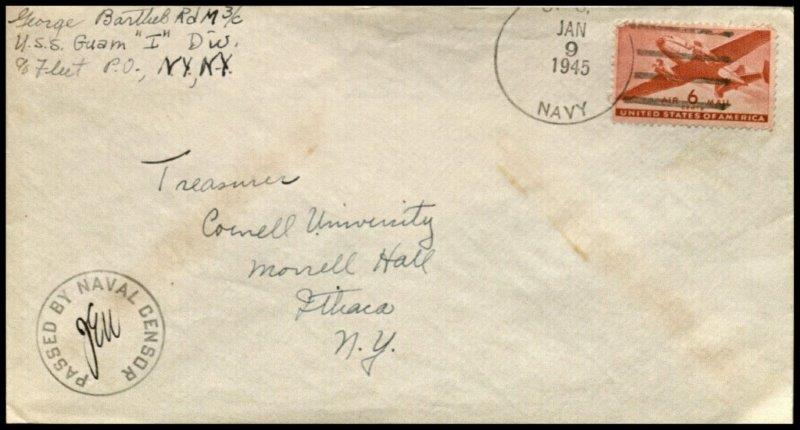 George Barthel RdM 3/c
U.S.S. Guam "I" Div.
% Fleet P.O., N.Y., N.Y.
JAN
9
1945
NAVY
AIR 6 MAIL
CENTS
UNITED STATES OF AMERICA
Treasurer
Cornell University
Morrell Hall
Ithaca
N.Y.
PASSED BY NAVAL CENSOR